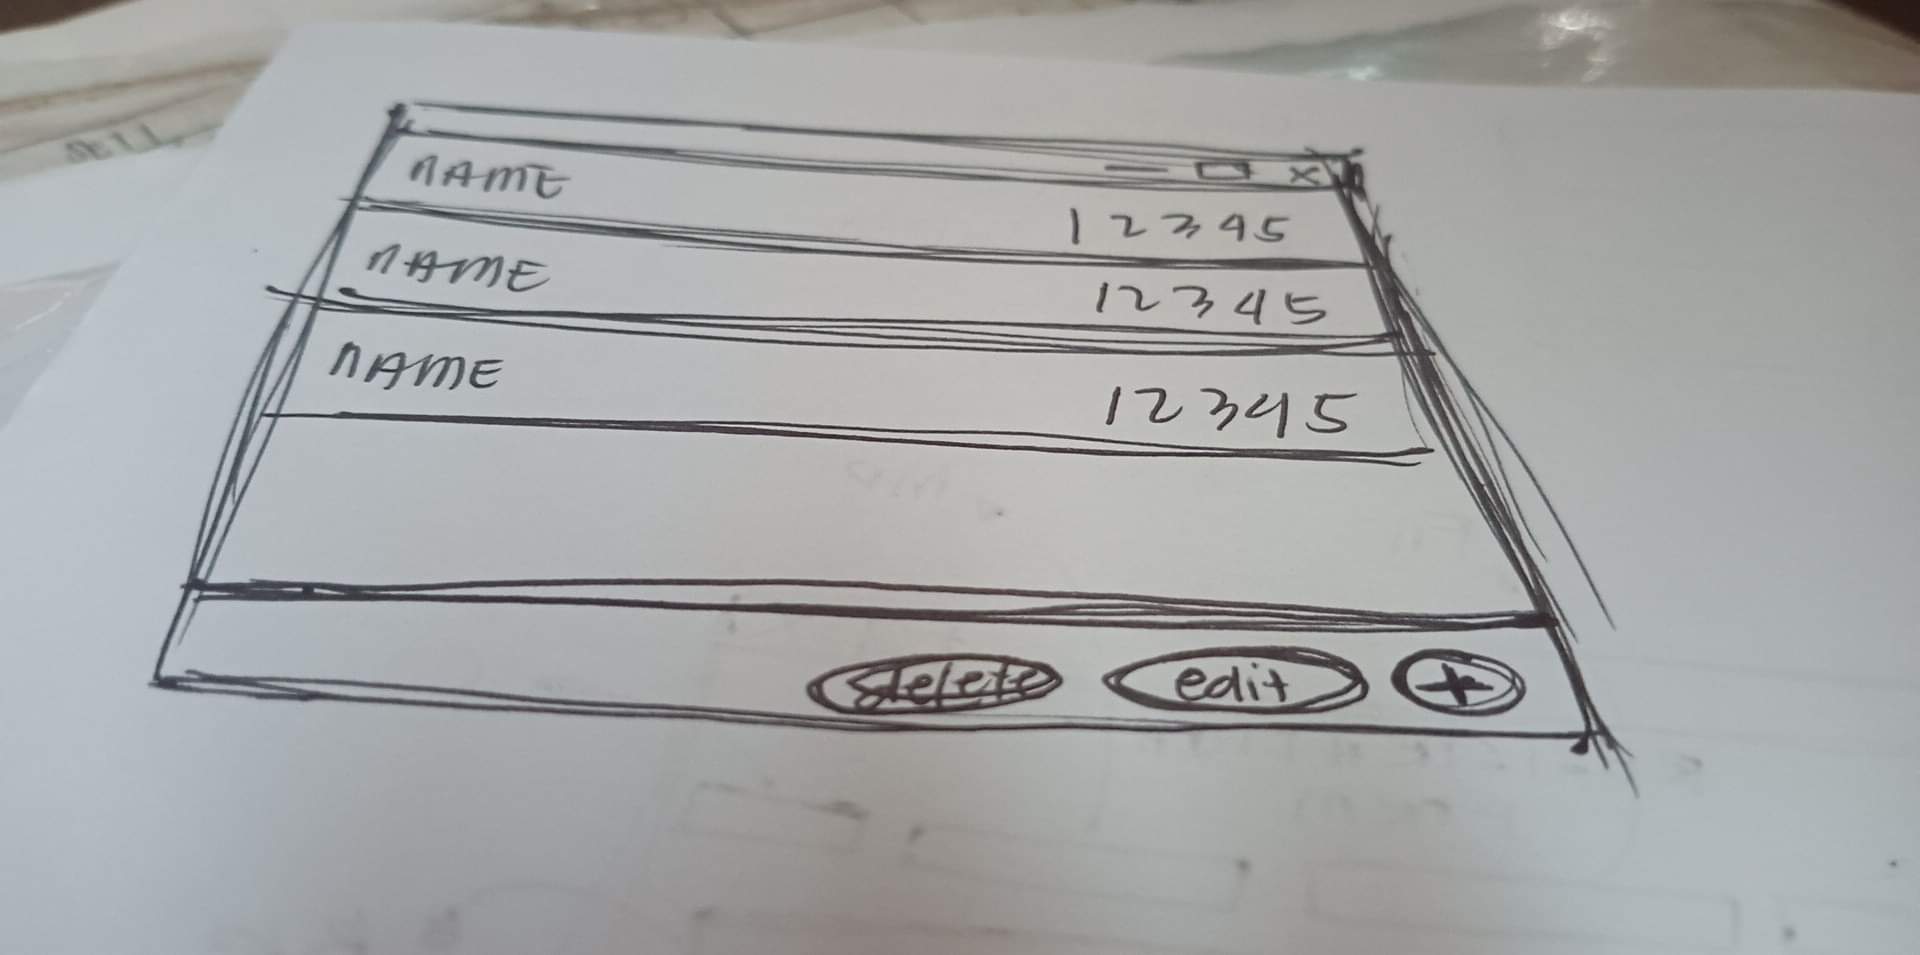 NAME
12345
NAME
12345
NAME
12345
delete edit +